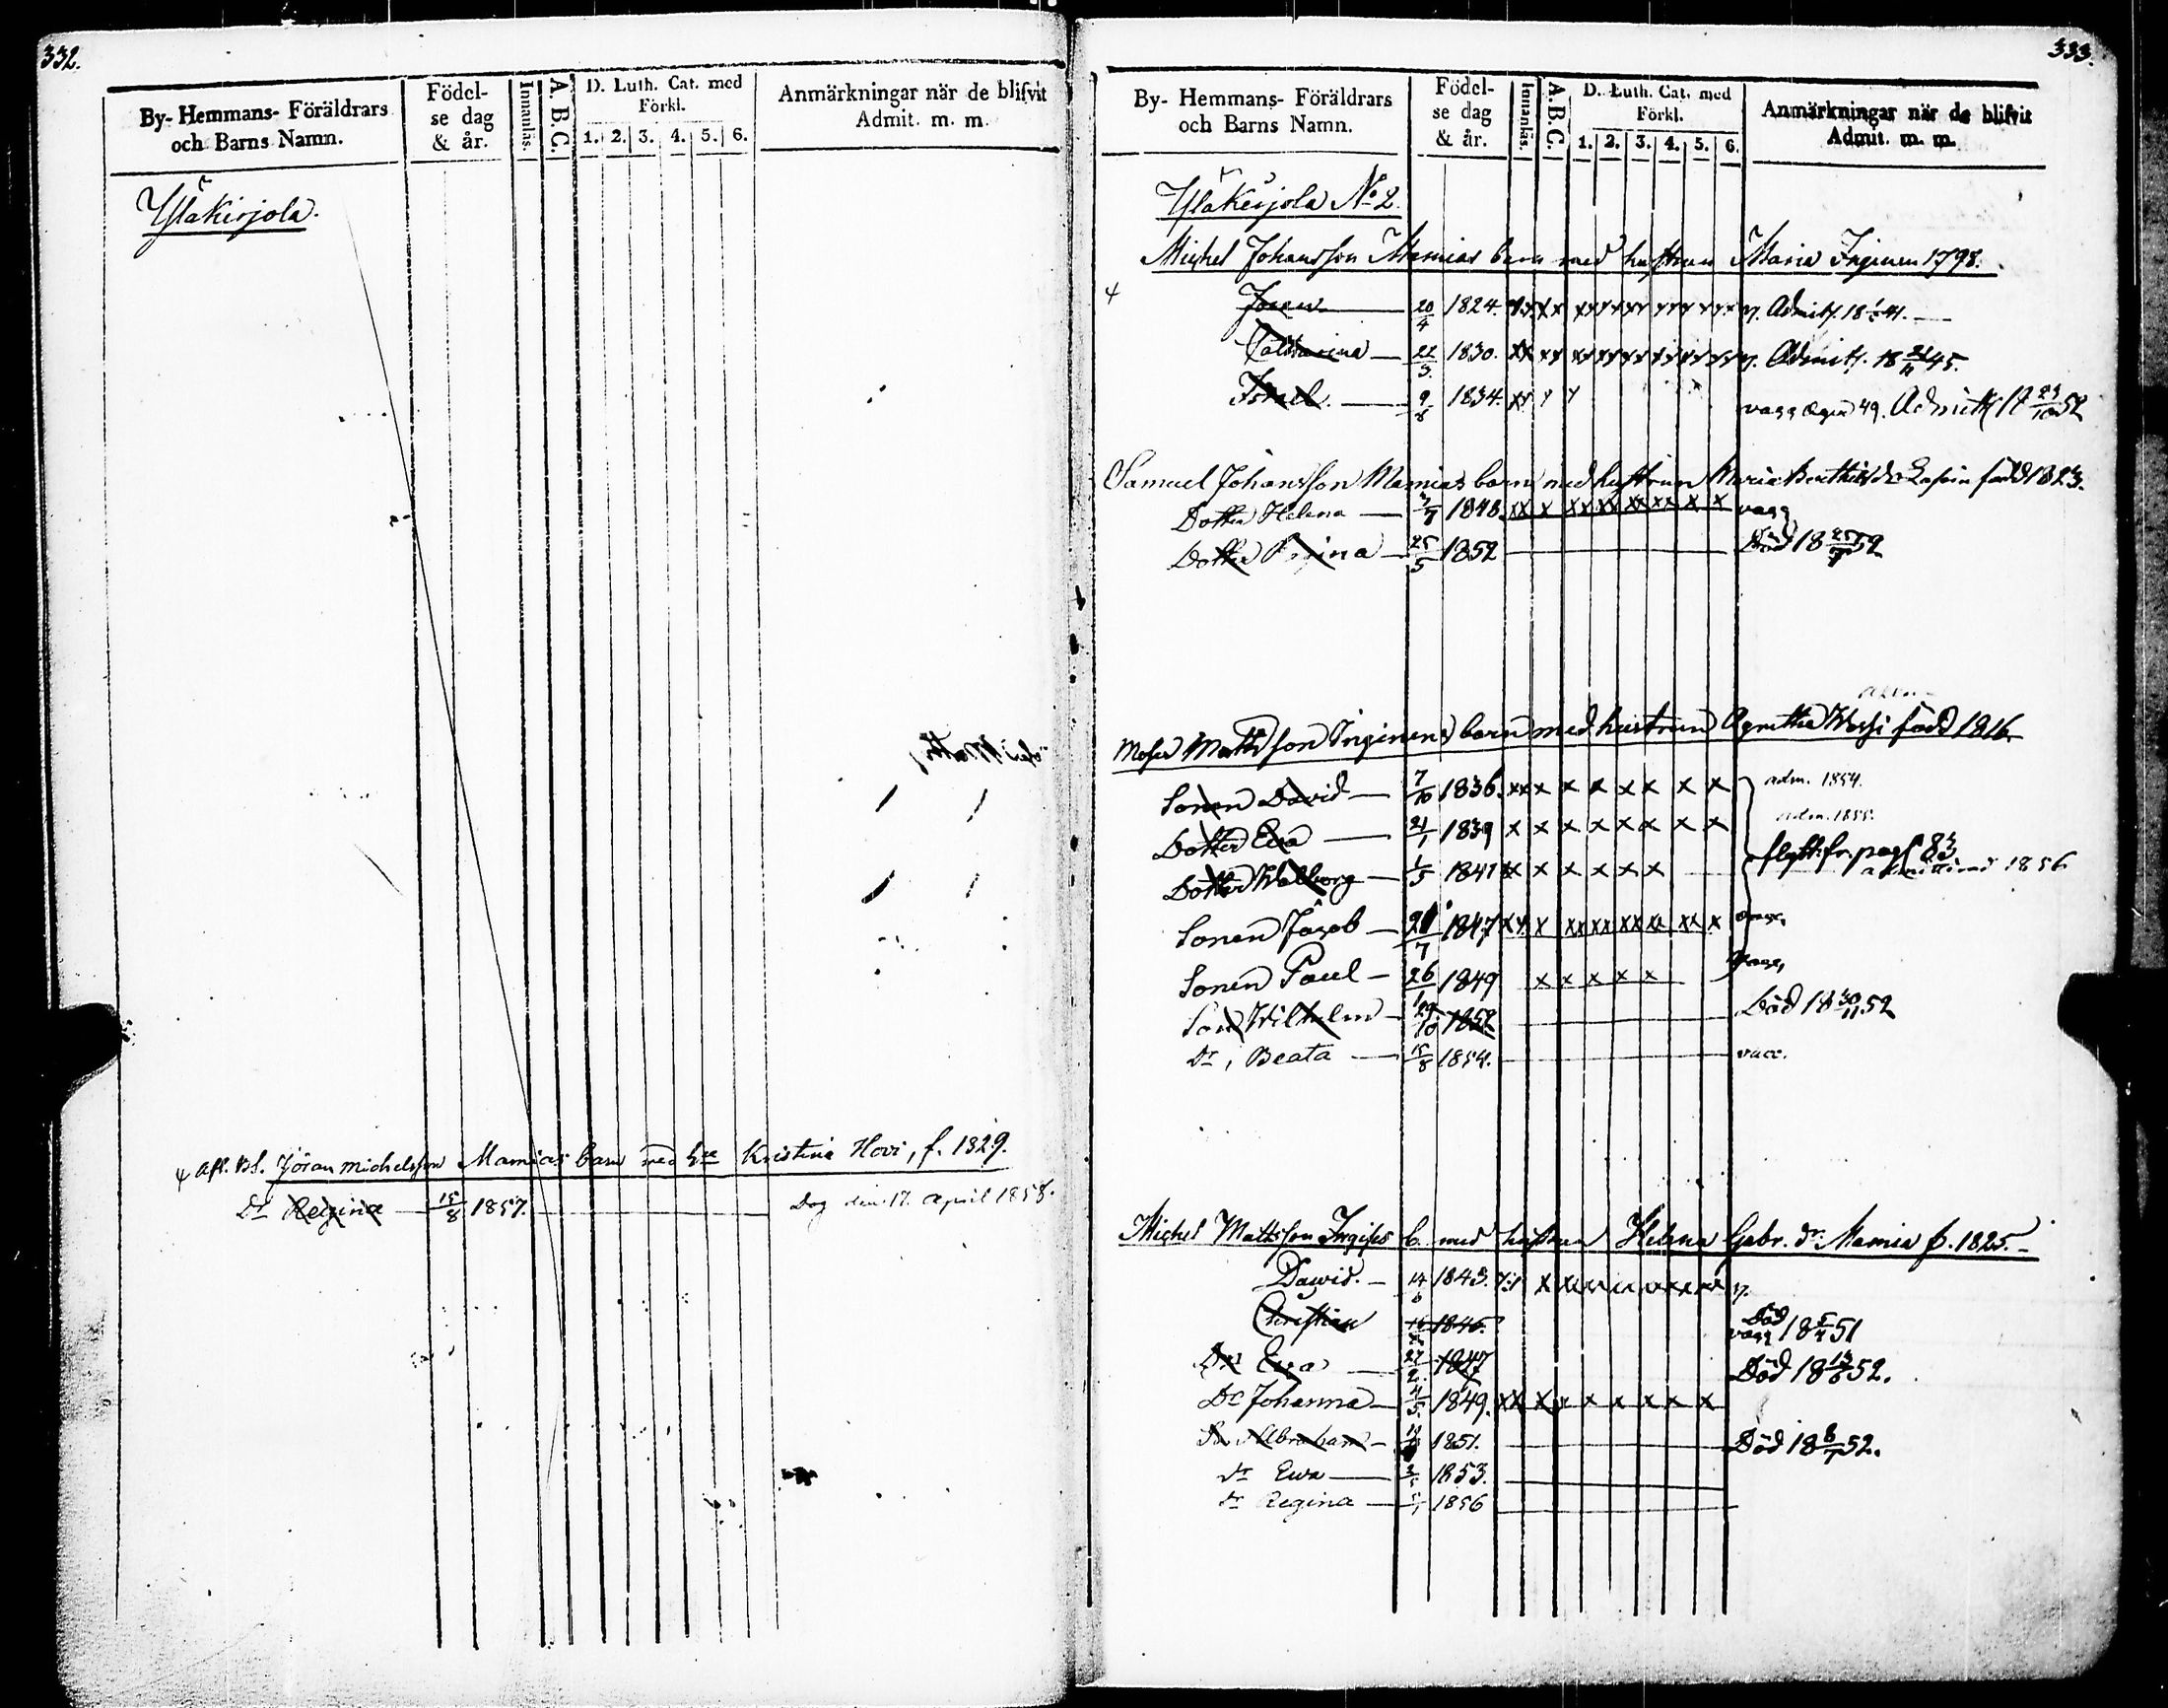 332.
By- Hemmans- Föräldrars och Barns Namn.
Födelse dag & år.
Innanläs.
A. B. C.
D. Luth. Cat. med Förkl.
1. 2. 3. 4. 5. 6.
Anmärkningar när de blifvit Admit. m. m.
Yläkirjola.
Afl. Bs. Jöran Michelsson Mamias barn med h. Kristina Hovi, f. 1829.
Dr Regina 15/8 1857. Dog den 17. April 1858.
333.
By- Hemmans- Föräldrars och Barns Namn.
Födelse dag & år.
Innanläs.
A. B. C.
D. Luth. Cat. med Förkl.
1. 2. 3. 4. 5. 6.
Anmärkningar när de blifvit Admit. m. m.
Yläkirjola No 2.
Michel Johansson Mamias barn med hustrun Maria Inginen 1798.
Jöran 20/4 1824. Admitt. 18 41.
Catharina 22/3 1830. Admitt. 18 45.
Israel. 9/8 1834. 49. Admitt 18 23/10 52
Samuel Johansson Mamias barn med hustrun Maria född 1823.
Dotter Helena 1848 vacc
Dotter Regina 25/5 1852 Död 18 25/7 52
Moses Mattsson Inginens barn med hustrun Agnetha född 1816.
Sonen David 7/10 1836. adm. 1854.
Dotter Eva 21/1 1839 adm. 1855.
flytt. fr. pag. 83
Dotter Walborg 1/5 1841 admitterad 1856
Sonen Jacob 21/7 1847
Sonen Paul 26/1 1849
Son Wilhelm 29/10 1852 Död 18 30/11 52
Dr, Beata 15/8 1854. vacc.
Michel Mattsson b. med hustrun Helena Gabr. dr Mamia f. 1825.
Dawid. 14/6 1843.
Christian 1846. Död vacc 18 5/4 51
Dr Ewa 27/2 1847 Död 18 13/6 52.
Dr Johanna 4/5 1849.
Sn Abraham 1851. Död 18 8/7 52.
dr Ewa 1853.
dr Regina 1856